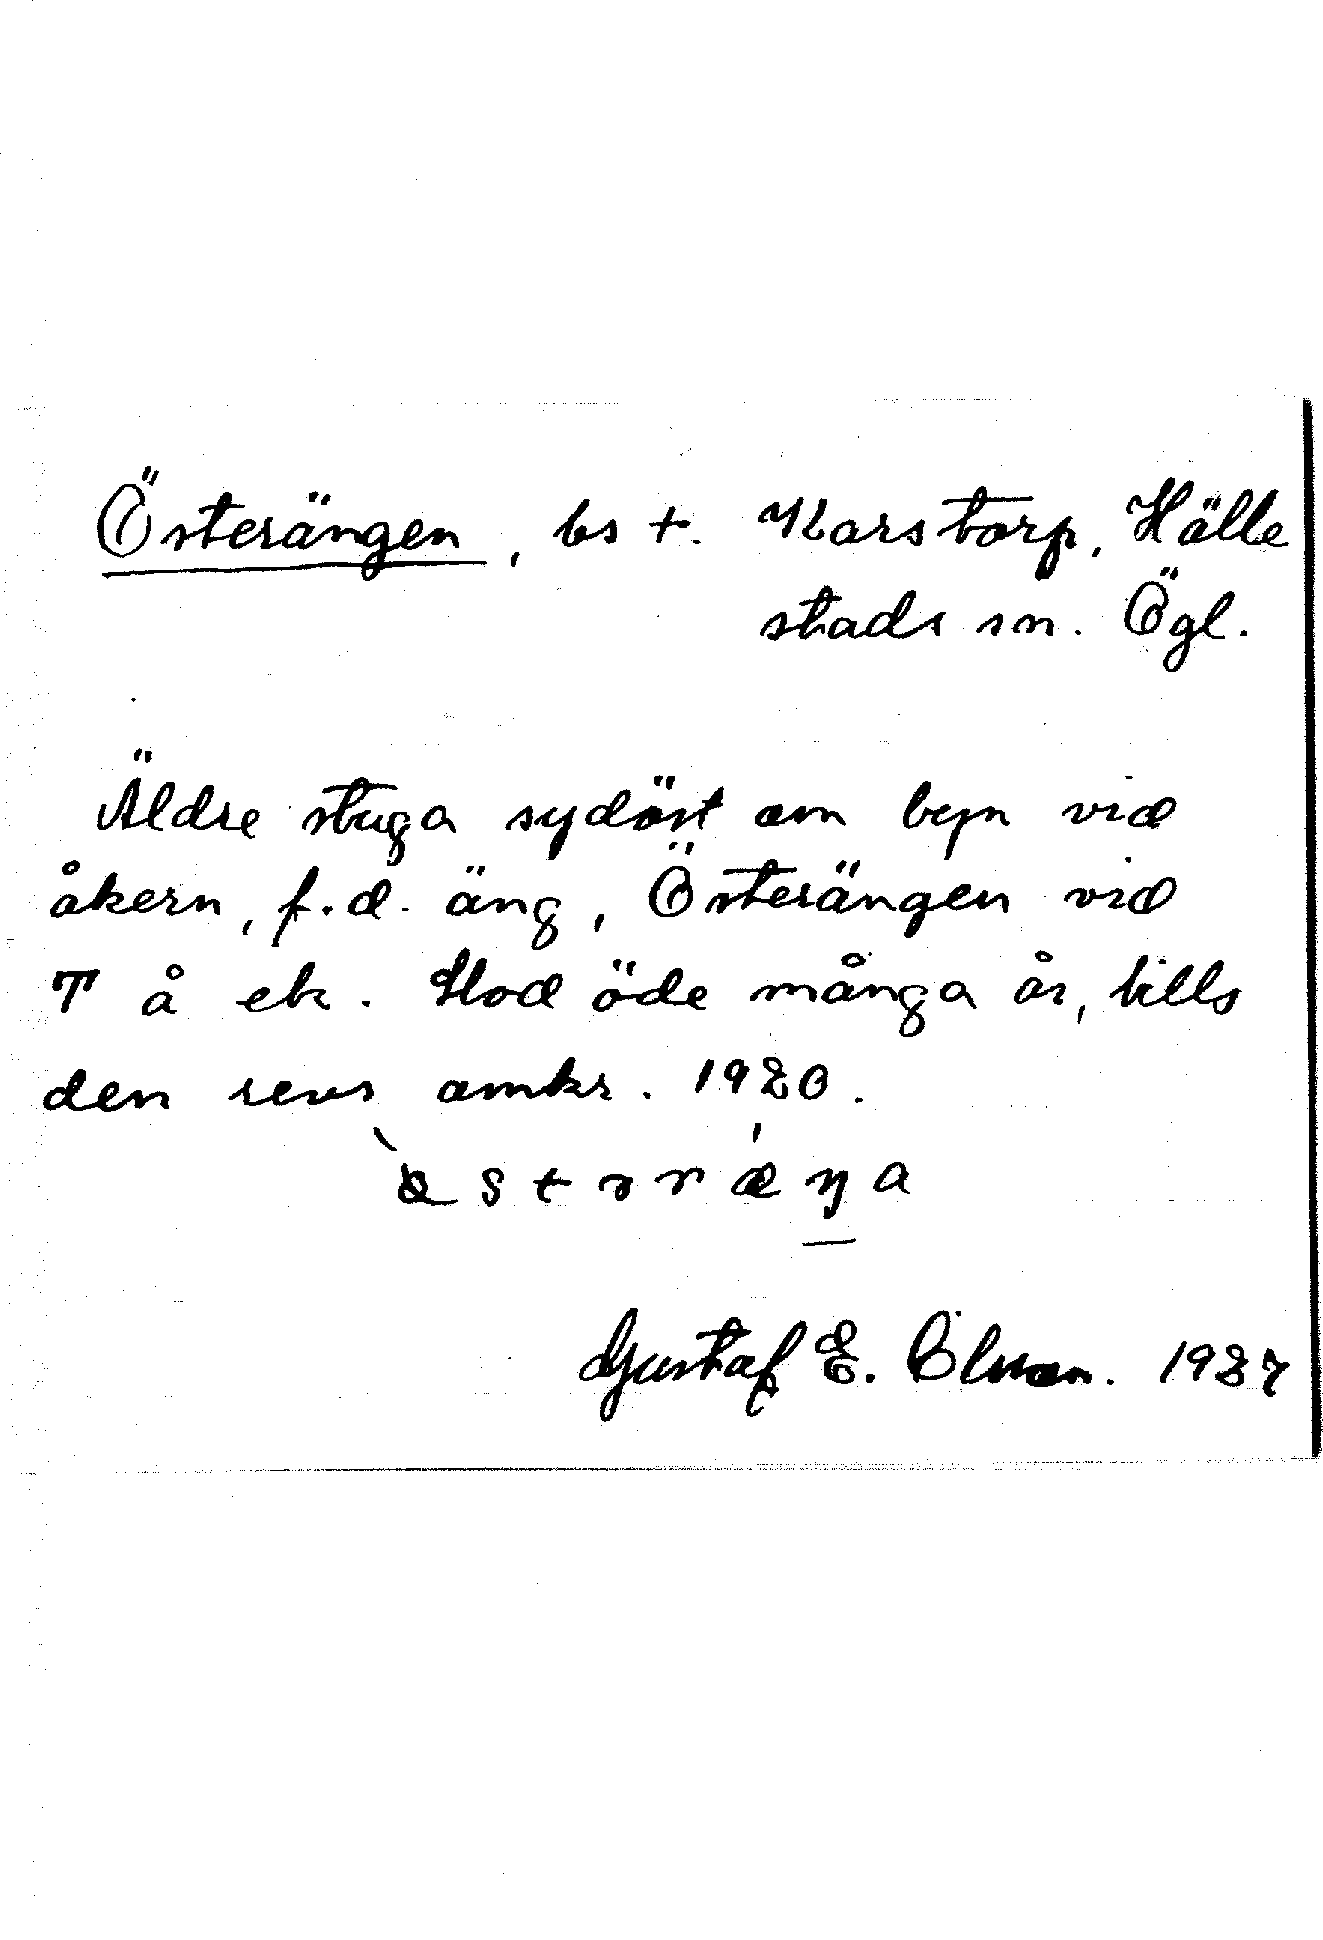 Österängen, bs t. Karstorp, Hälle
stads sn. Ögl.
Äldre stuga sydöst om byn vid
åkern, f.d. äng, Österängen vid
T å ek. Stod öde många år, tills
den revs omkr. 1920.
Gustaf E. Ölman. 1987